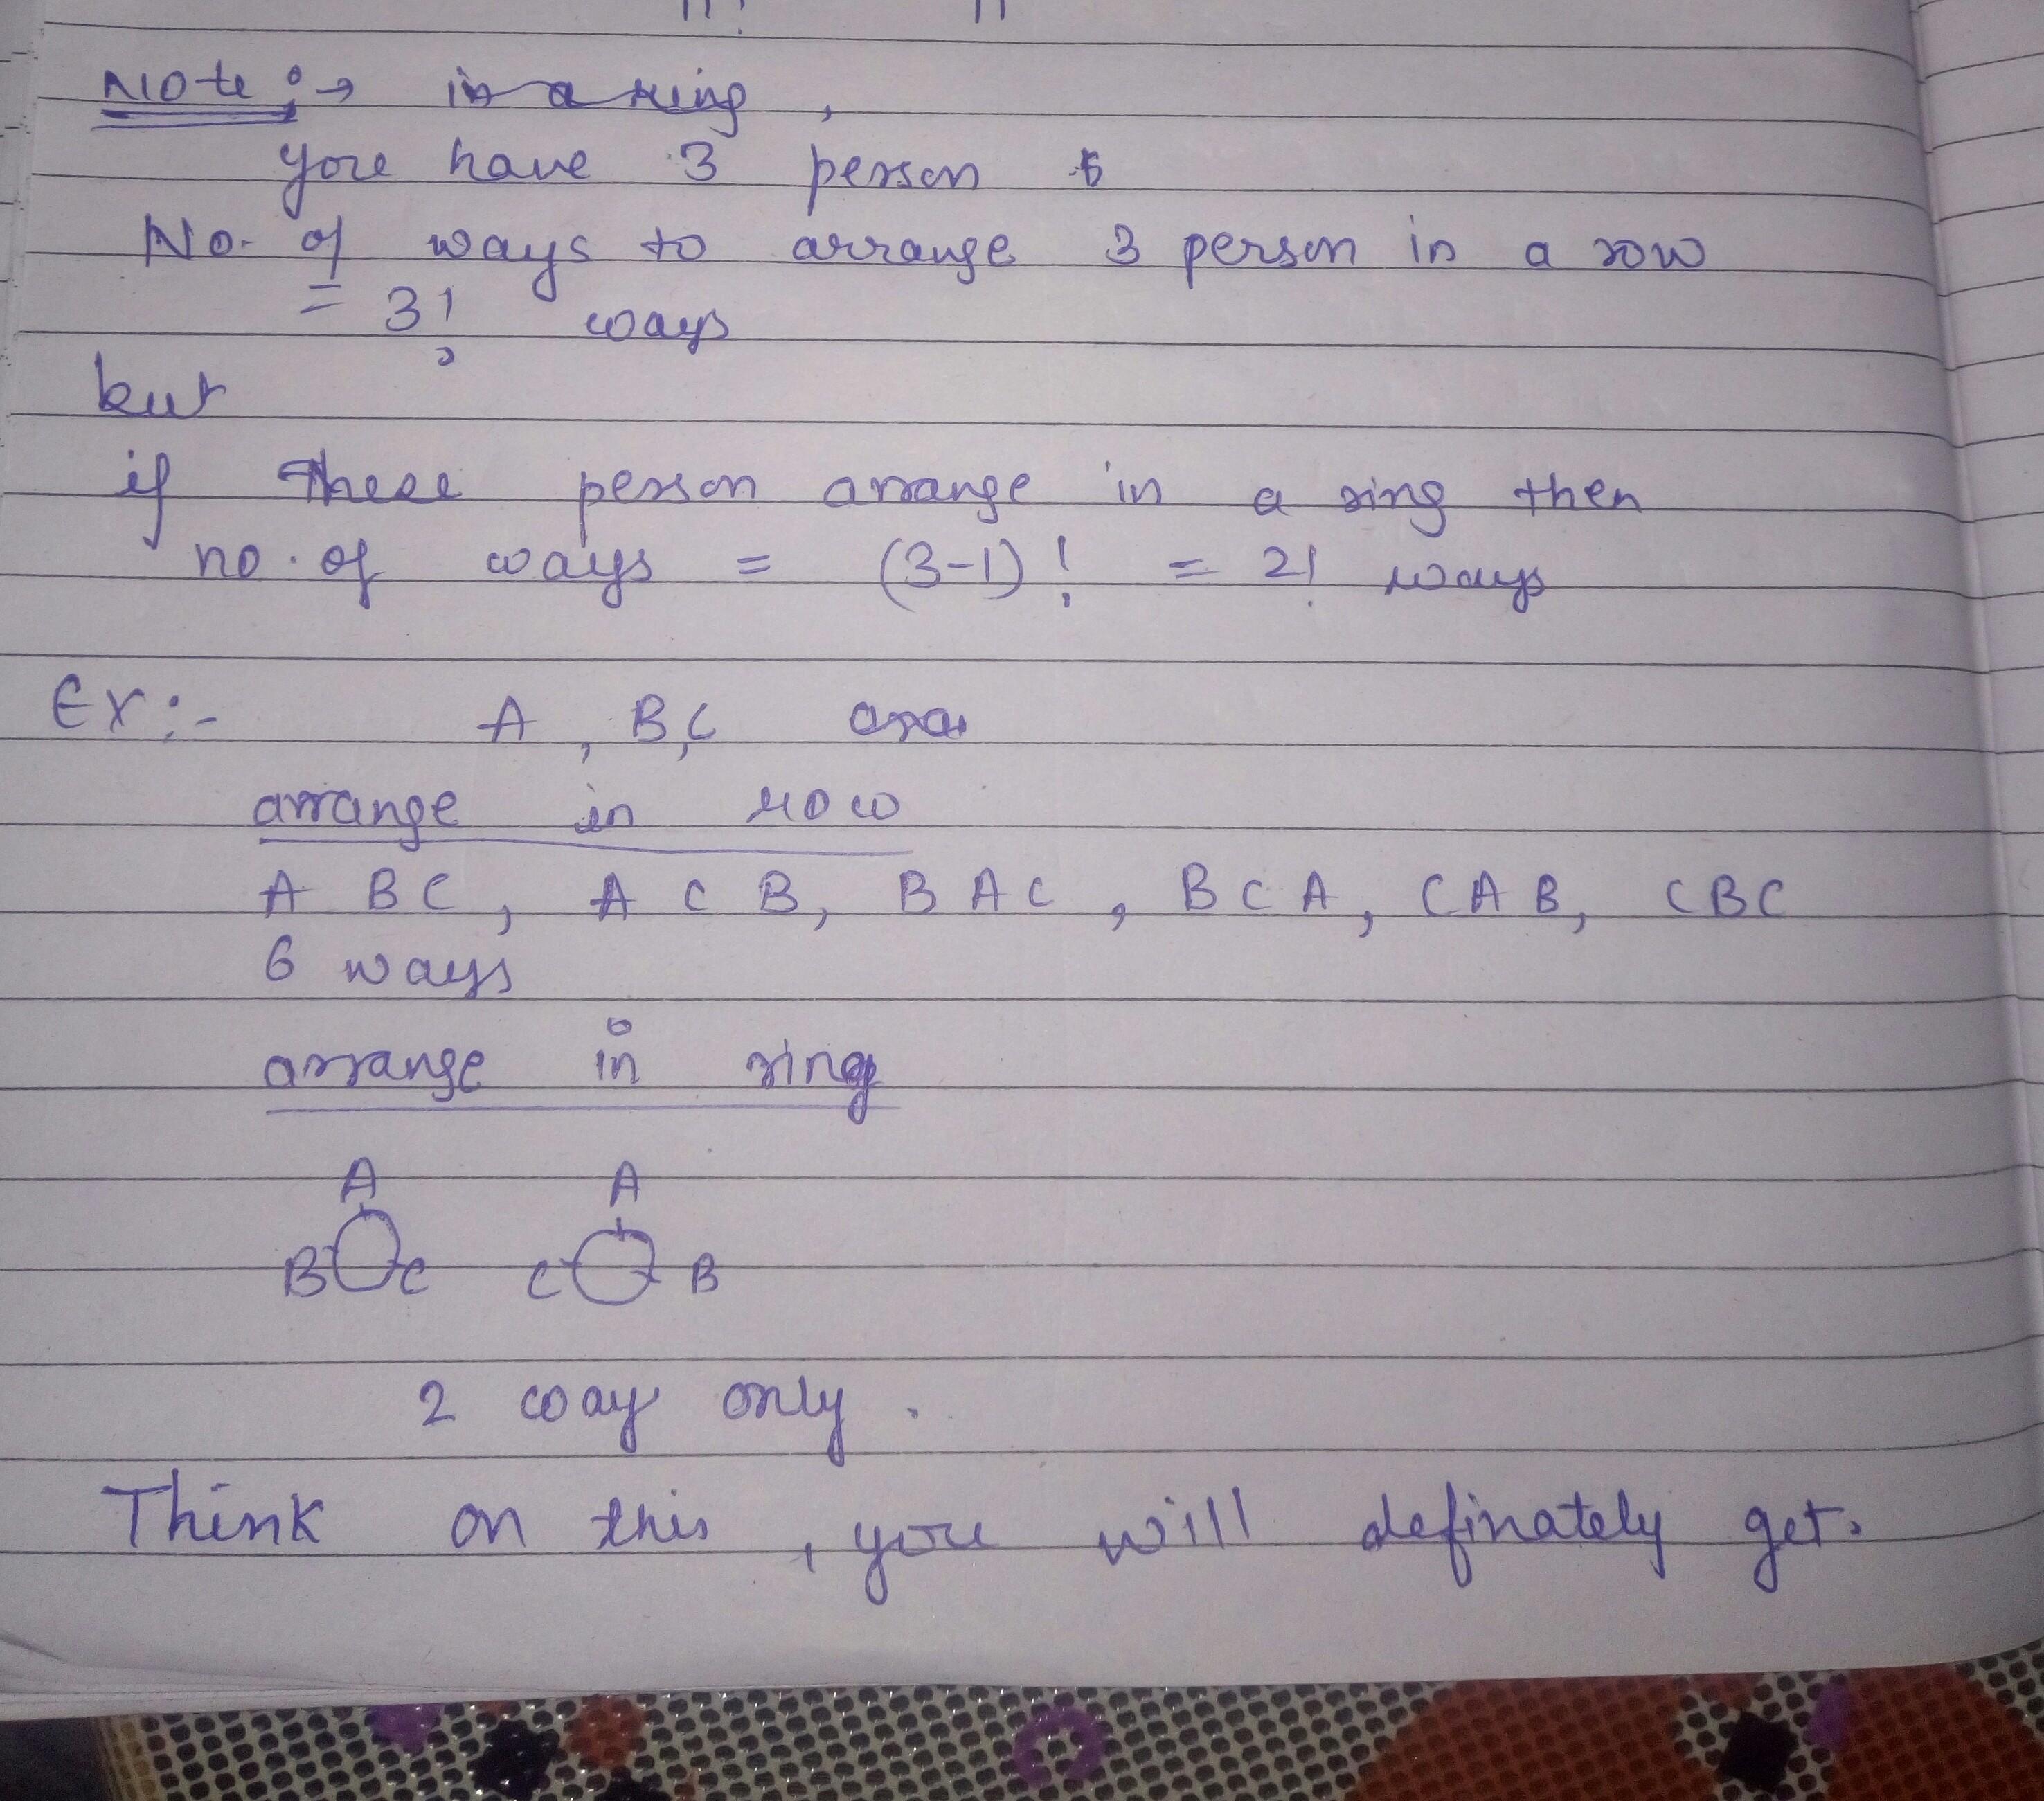 Note :→ in a ring,
you have 3 person
No. of ways to arrange 3 person in a row
= 3! ways
but
if these person arrange in a ring then
no. of ways = (3-1)! = 2! ways
Ex:- A, B, C
arrange in row
A B C, A C B, B A C, B C A, C A B, C B C
6 ways
arrange in ring
A A
B C C B
2 way only.
Think on this, you will definately get.